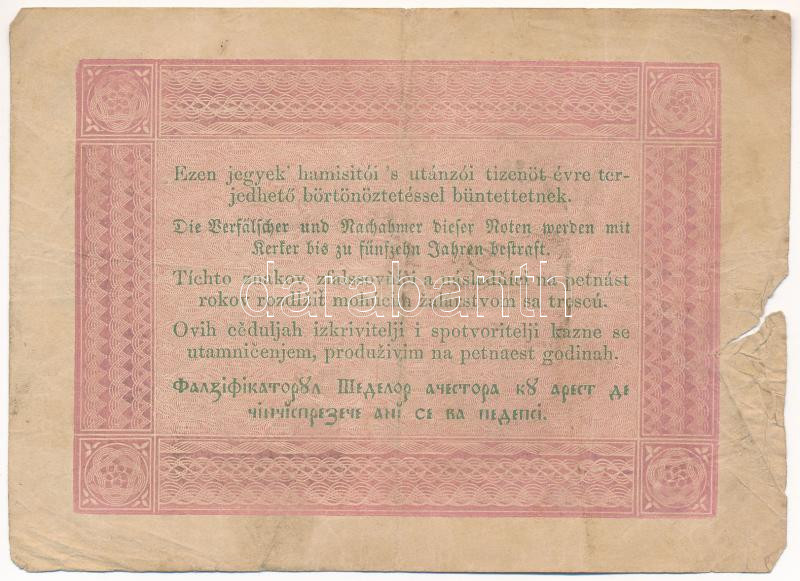 Ezen jegyek' hamisitói 's utánzói tizenöt évre ter-
jedhető börtönöztetéssel büntettetnek.
Die Verfälscher und Nachahmer dieser Noten werden mit
Kerker bis zu fünfzehn Jahren bestraft.
Tíchto znakov a na petnást
rokov rozdlžiť žalárstvom sa trescú.
Ovih cěduljah izkrivitelji i spotvoritelji kazne se
utamničenjem, produživim na petnaest godinah.
Фалзіфікаторꙋл Шеделор ачестора кꙋ арест де
чінчіспрезече ані се ва педепсі.
darabanth